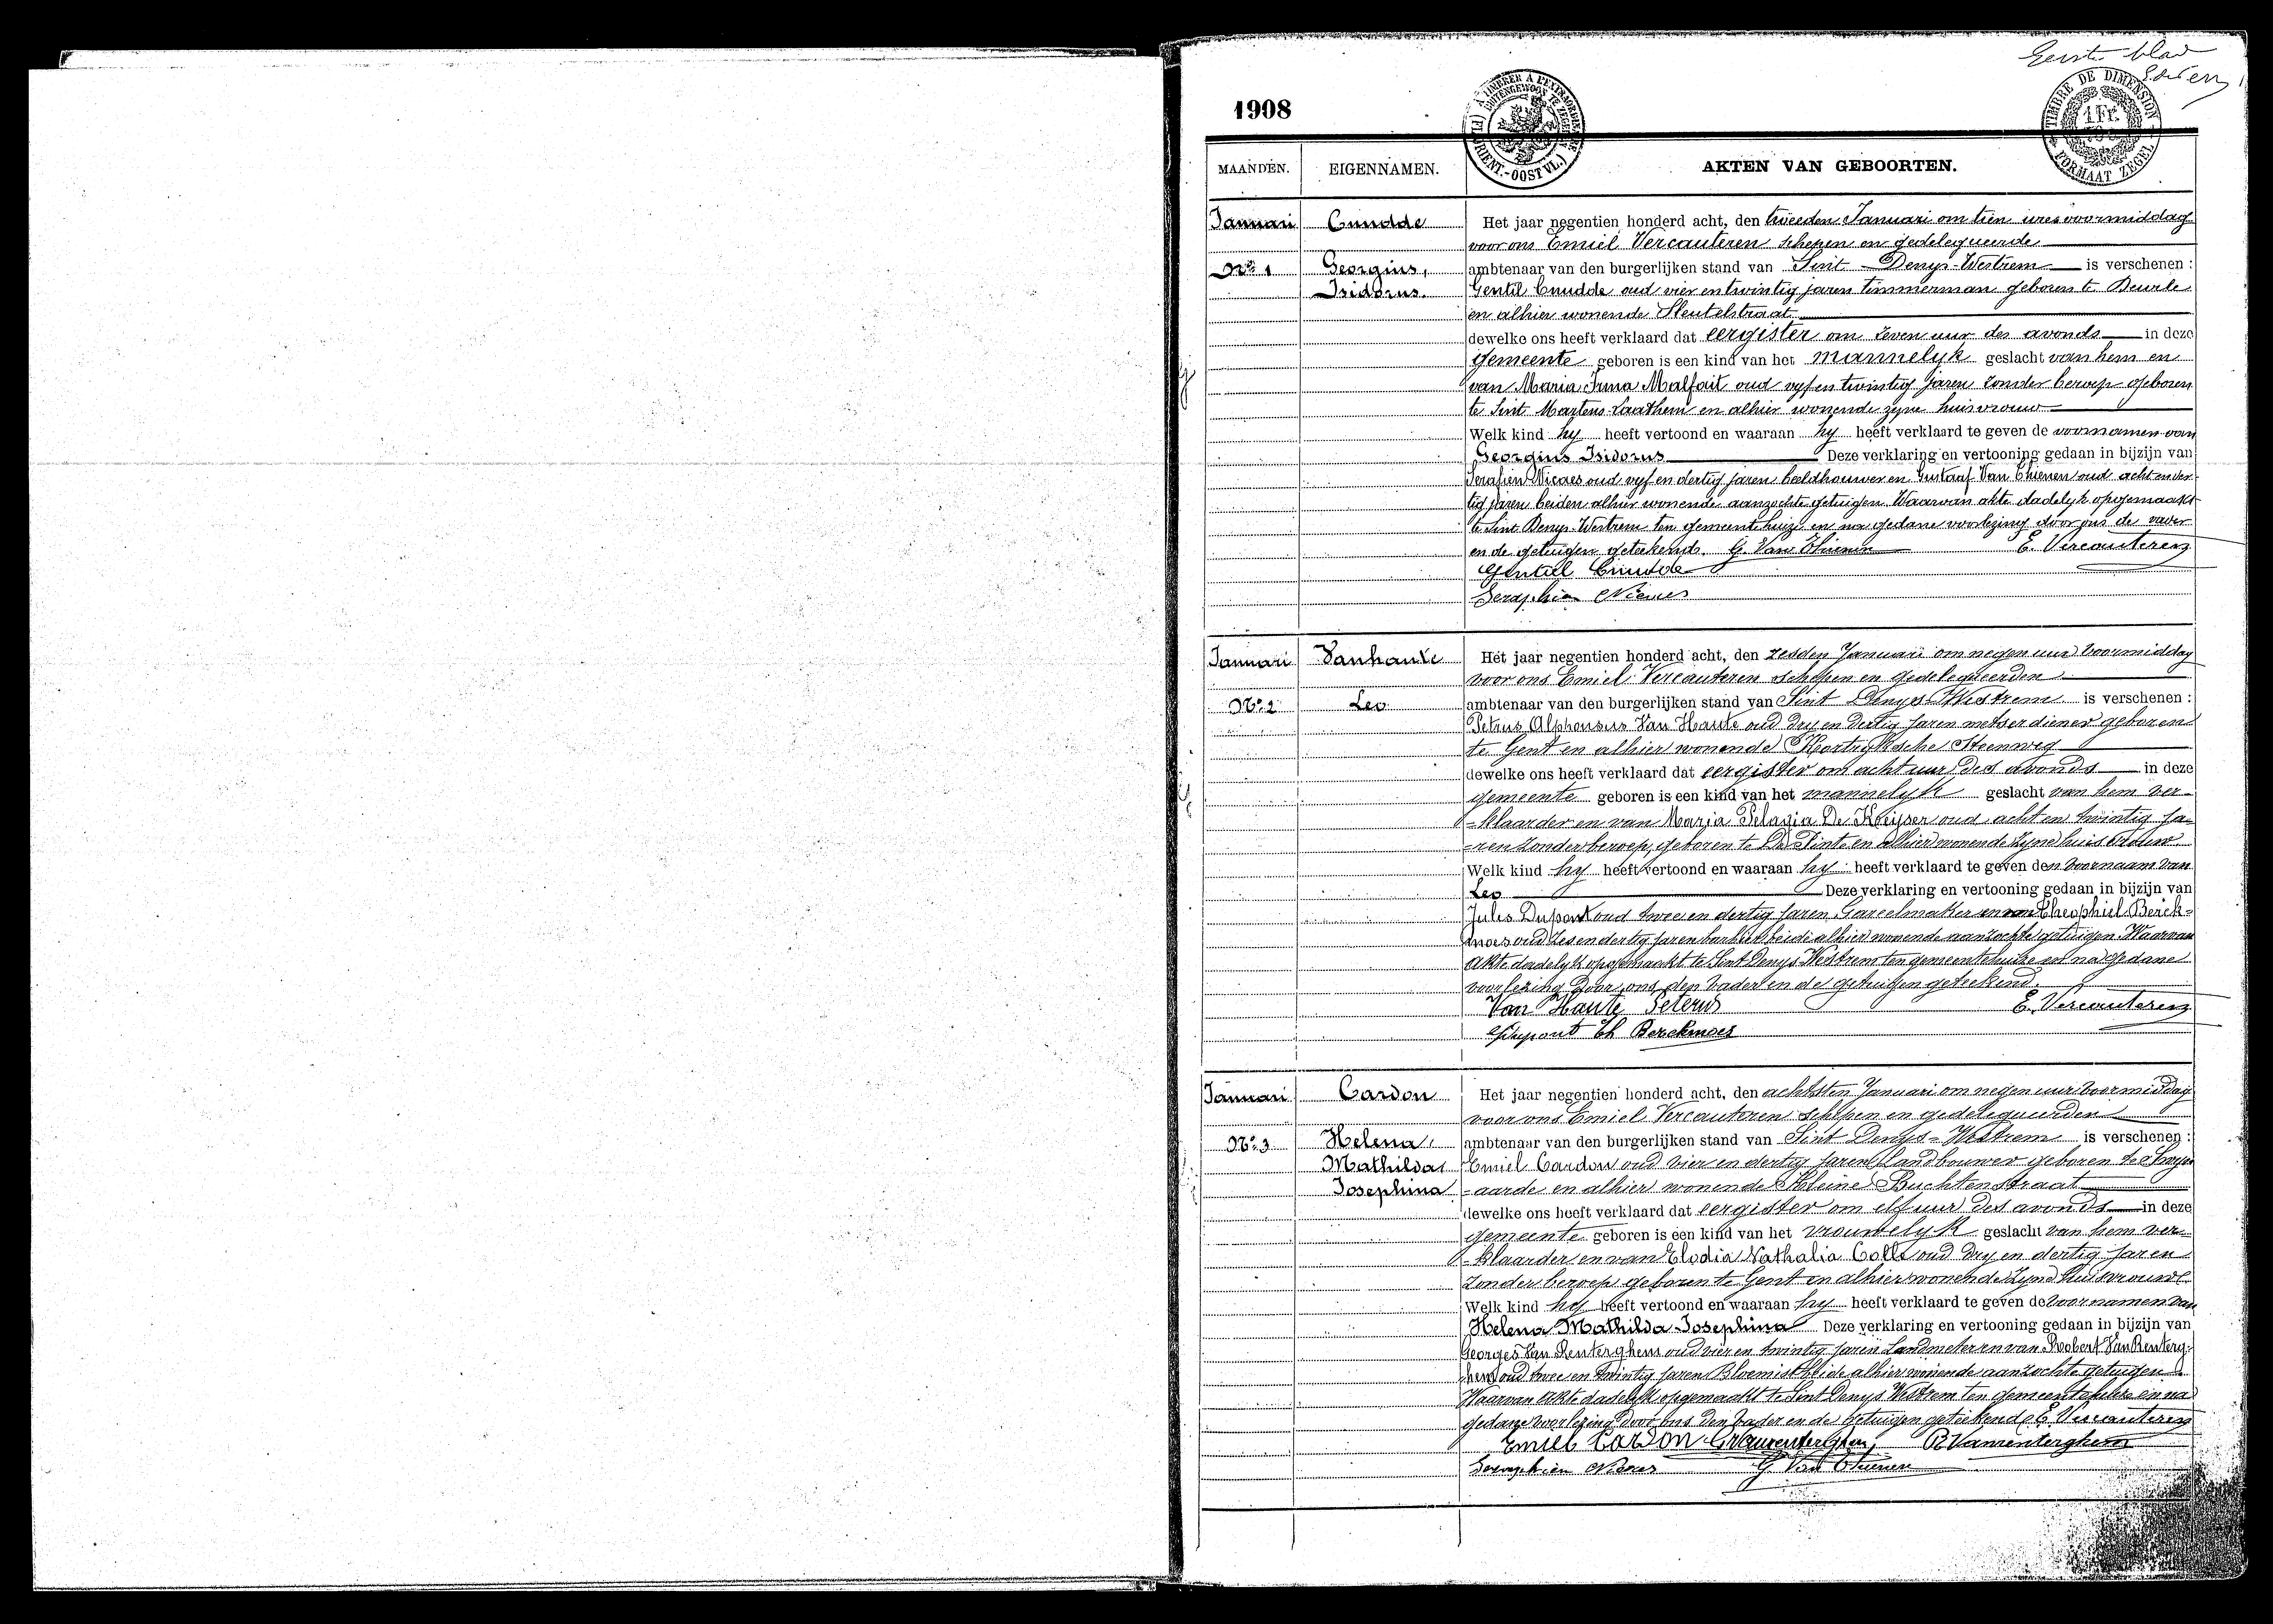 Eerste blad
1908
A TIMBRER A L'EXTRAORDINAIRE
BUITENGEWOON TE ZEGELEN
(FL. ORIENT.-OOST VL.)
TIMBRE DE DIMENSION
1 Fr.
FORMAAT ZEGEL
MAANDEN. EIGENNAMEN. AKTEN VAN GEBOORTEN.
Januari Cnudde Het jaar negentien honderd acht, den tweeden Januari om tien ures voormiddag
voor ons Emiel Vercauteren schepen en gedelegueerde
No 1 Georgius, ambtenaar van den burgerlijken stand van Sint-Denys-Westrem is verschenen :
Isidorus. Gentil Cnudde oud vier en twintig jaren timmerman geboren te Deurle
en alhier wonende Sleutelstraat
dewelke ons heeft verklaard dat eergister om zeven uur des avonds in deze
gemeente geboren is een kind van het mannelyk geslacht van hem en
van Maria Irma Malfait oud vyf en twintig jaren zonder beroep geboren
te Sint Martens-Laathem en alhier wonende zyne huisvrouw
Welk kind hy heeft vertoond en waaraan hy heeft verklaard te geven de voornamen van
Georgius Isidorus Deze verklaring en vertooning gedaan in bijzijn van
Serafien Nicaes oud vyf en dertig jaren beeldhouwer en Gustaaf Van Thienen oud acht en der-
tig jaren beiden alhier wonende aanzochte getuigen. Waarvan akte dadelyk opgemaakt
te Sint Denys-Westrem ten gemeentehuize en na gedane voorlezing door ons de vader
en de getuigen geteekend. G. Van Thienen E. Vercauteren
Gentiel Cnudde
Seraphien Nicaes
Januari Vanhaute Het jaar negentien honderd acht, den zesden Januari om negen uur voormiddag
voor ons Emiel Vercauteren schepen en gedelegueerden
No 2 Leo ambtenaar van den burgerlijken stand van Sint Denys-Westrem is verschenen :
Petrus Alphonsus Van Haute oud dry en dertig jaren metserdiener geboren
te Gent en alhier wonende Kortryksche Steenweg
dewelke ons heeft verklaard dat eergister om acht uur des avonds in deze
gemeente geboren is een kind van het mannelyk geslacht van hem ver-
-klaarder en van Maria Pelagia De Keijser oud acht en twintig ja-
-ren zonder beroep, geboren te De Pinte en alhier wonende zyne huisvrouw
Welk kind hy heeft vertoond en waaraan hy heeft verklaard te geven den voornaam van
Leo Deze verklaring en vertooning gedaan in bijzijn van
Jules Dupont oud twee en dertig jaren Gareelmaker en van Theophiel Berck-
moes oud zes en dertig jaren barbier beide alhier wonende aanzochte getuigen. Waarvan
Akte dadelyk opgemaakt te Sint Denys Westrem ten gemeentehuize en na gedane
voorlezing door ons den vader en de getuigen geteekend.
Van Haute Peterus E. Vercauteren
Dupont Th Berckmoes
Januari Cardon Het jaar negentien honderd acht, den achtsten Januari om negen uur voormiddag
voor ons Emiel Vercauteren schepen en gedelegueerden
No 3 Helena, ambtenaar van den burgerlijken stand van Sint Denys-Westrem is verschenen :
Mathilda, Emiel Cardon oud vier en dertig jaren Landbouwer geboren te Swyn
Josephina -aarde en alhier wonende Kleine Buchtenstraat
dewelke ons heeft verklaard dat eergister om elf uur des avonds in deze
gemeente geboren is een kind van het vrouwelyk geslacht van hem ver-
-klaarder en van Elodia Nathalia Colle oud dry en dertig jaren
zonder beroep geboren te Gent en alhier wonende zyne huisvrouwe
Welk kind hy heeft vertoond en waaraan hy heeft verklaard te geven de voornamen van
Helena Mathilda Josephina Deze verklaring en vertooning gedaan in bijzijn van
Georges Van Renterghem oud vier en twintig jaren Landmeter en van Robert Van Renterg-
hem oud twee en twintig jaren Bloemist beide alhier wonende aanzochte getuigen
Waarvan Akte dadelyk opgemaakt te Sint Denys Westrem ten gemeentehuize en na
gedane voorlezing door ons den vader en de getuigen geteekend E. Vercauteren
Emiel Cardon G Vanrenterghem R Vanrenterghem
Seraphien Nicaes G. Van Thienen